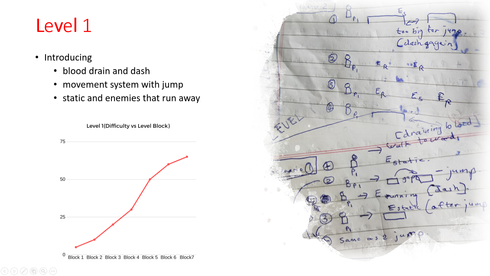 Level 1
• Introducing
• blood drain and dash
• movement system with jump
• static and enemies that run away
Level 1(Difficulty vs Level Block)
75
50
25
0
Block 1 Block 2 Block 3 Block 4 Block 5 Block 6 Block7
① P₁ Es
too big for jump.
[dash again]
② P₁ ER
③ P₁ ER Es ER
④ P₁
[draining blood]
① P₁ → walk towards
E static.
② P₁ - jump
→ E running [dash].
③ P₁ → E static (after jump
Same as jump